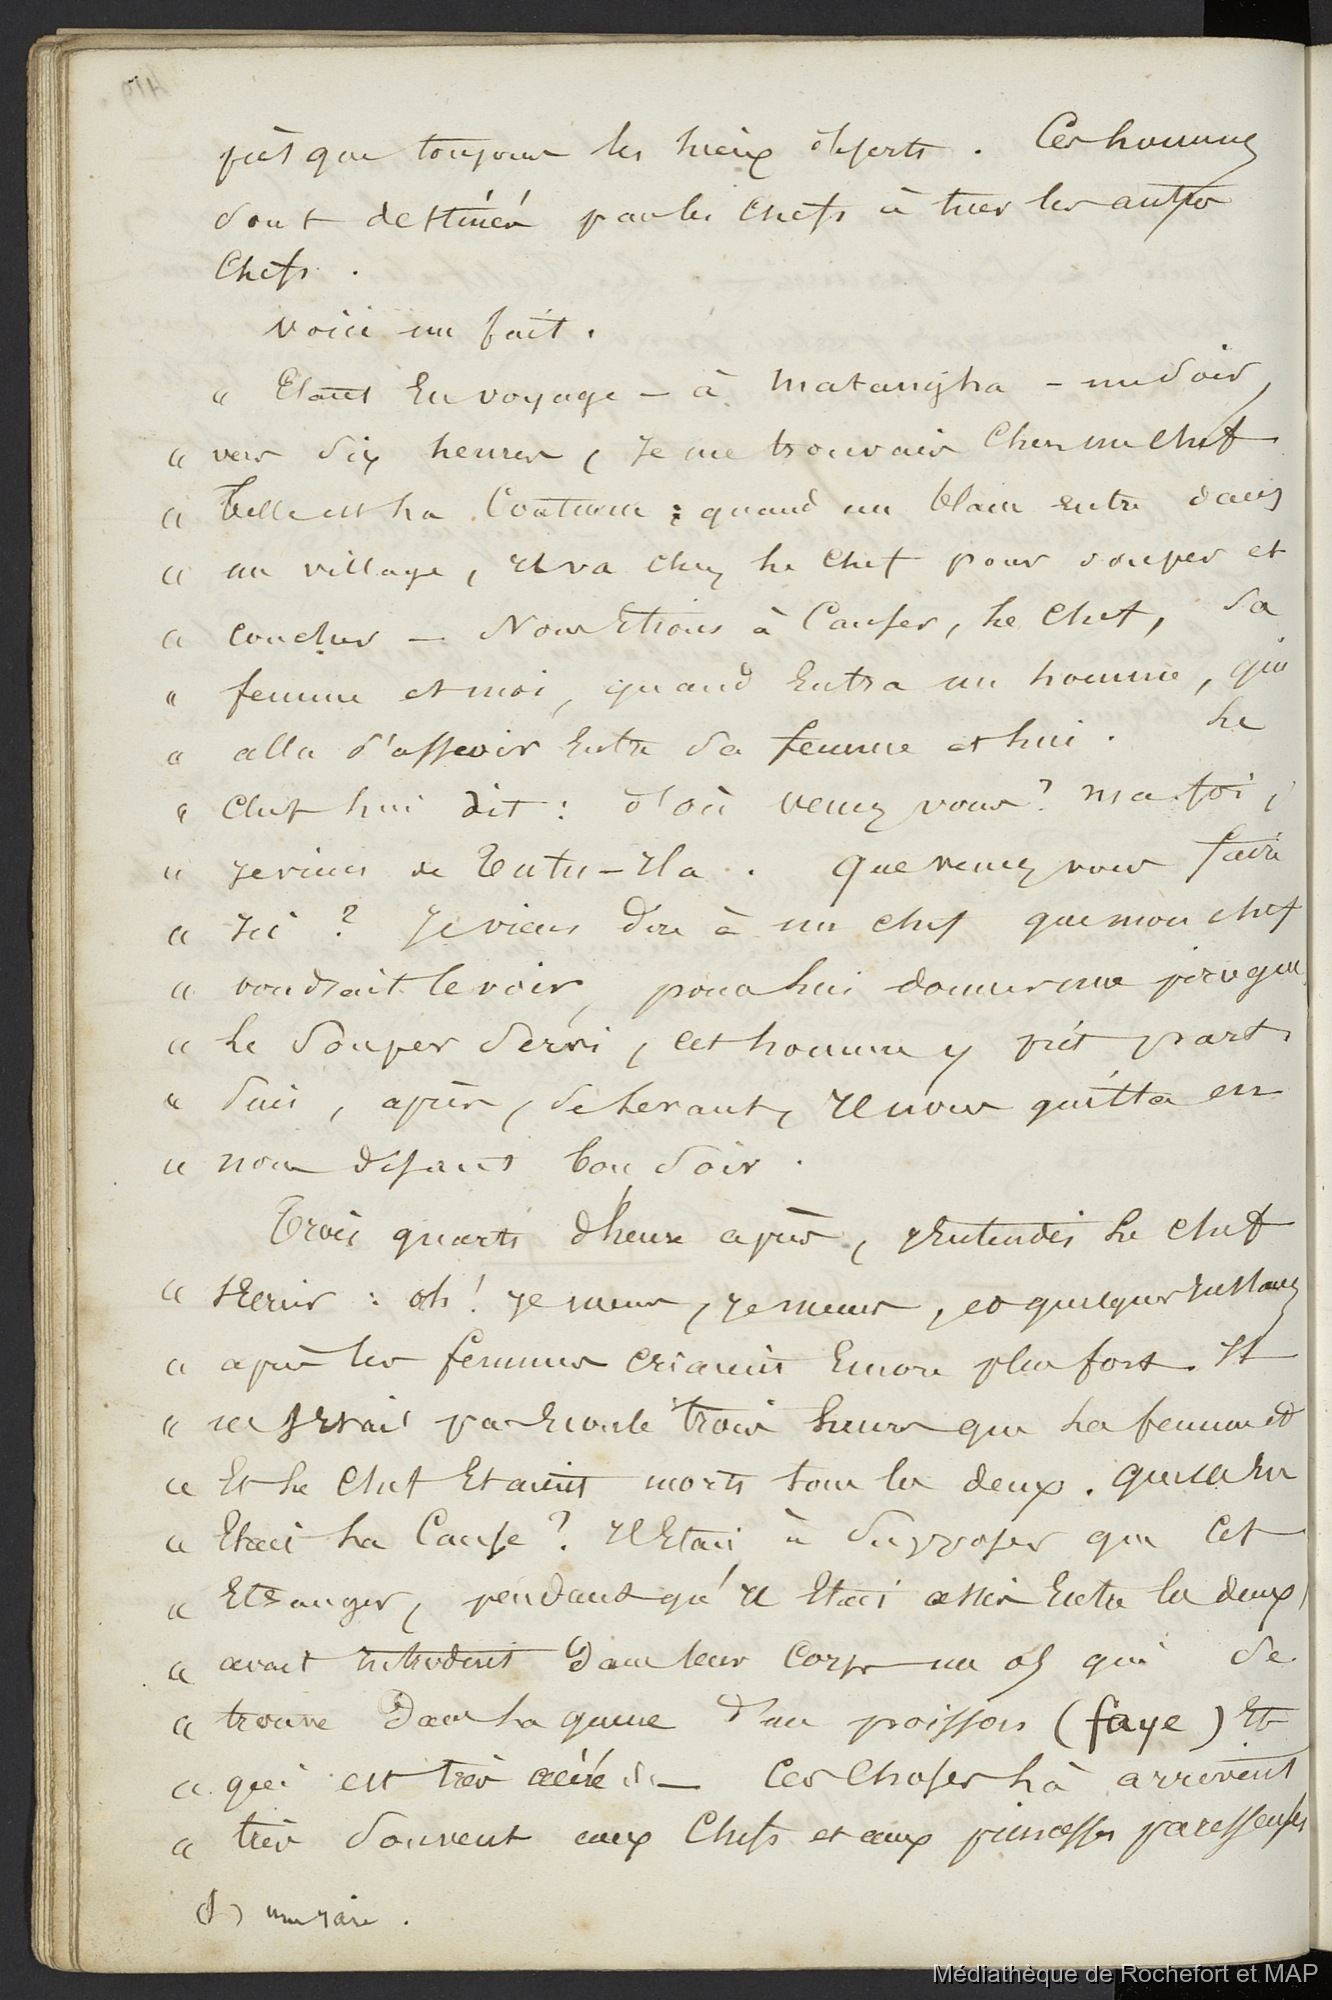 que toujours les mieux experts. Ces hommes
sont destinés par les chefs à tuer les autres
Chefs.
Voici un fait.
" Etant en voyage - à Matangha - un soir,
" vers dix heures, je me trouvais chez un chef
" telle est la Coutume ; quand un blanc entre dans
" un village, il va chez le chef pour souper et
" coucher - Nous etions à Causer, le chef, sa
" femme et moi, quand entra un homme, qui
" alla s'asseoir entre sa femme et lui. Le
" chef lui dit : d'où venez vous ? Ma foi,
" je viens de Tutu-Ila. Que venez vous faire
" ici ? Je viens dire à un chef que mon chef
" voudrait le voir, pour lui donner une pirogue
" le souper servi, cet homme y prit part.
" Puis, après, se levant, il nous quitta en
" nous disant bon soir.
Trois quarts d'heure après, j'entendis le chef
" s'ecrier : oh ! je meurs, je meurs, et quelques instants
" après les femmes criaient encore plus fort. Il
" ne s'etait pas ecoulé trois heures que la femme
" Et le Chef Etaient morts tous les deux. Quelle en
" Etait la Cause ? Il Etait à supposer que Cet
" Etranger, pendant qu'il Etait assis Entre les deux,
" avait introduit dans leur corps un os qui se
" trouve dans la queue d'un poisson (faye) Et
" qui est très acéré - Ces Choses là arrivent
" très souvent aux Chefs et aux princesses paresseuses
(1) une raie.
Médiathèque de Rochefort et MAP